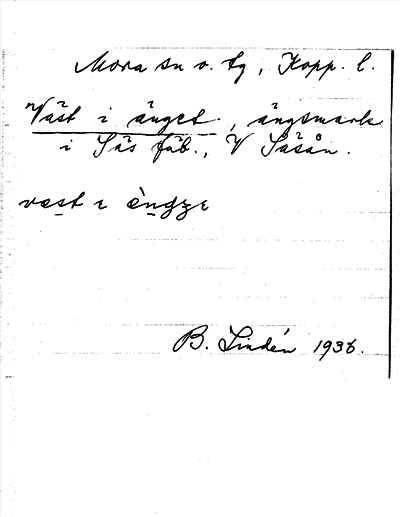 Mora sn o. tg, Kopp. l.
Väst i änget, ängsmark
i Säs fäb., V Säsån.
væst ı
B. Lindén 1936.